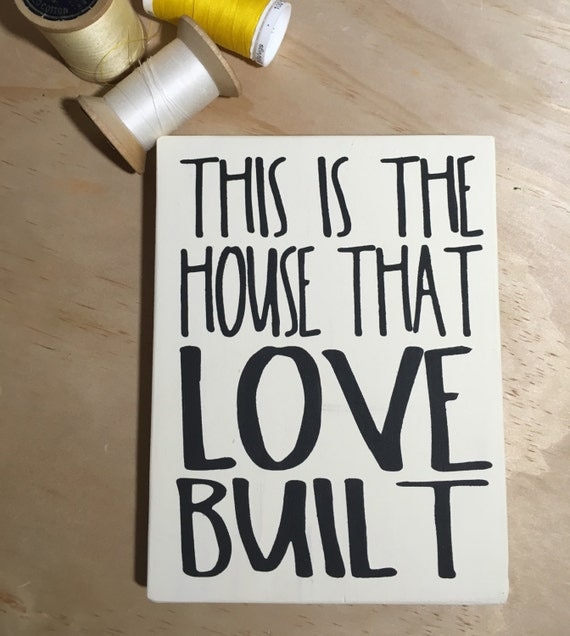 COTTON
THIS IS THE
HOUSE THAT
LOVE
BUILT